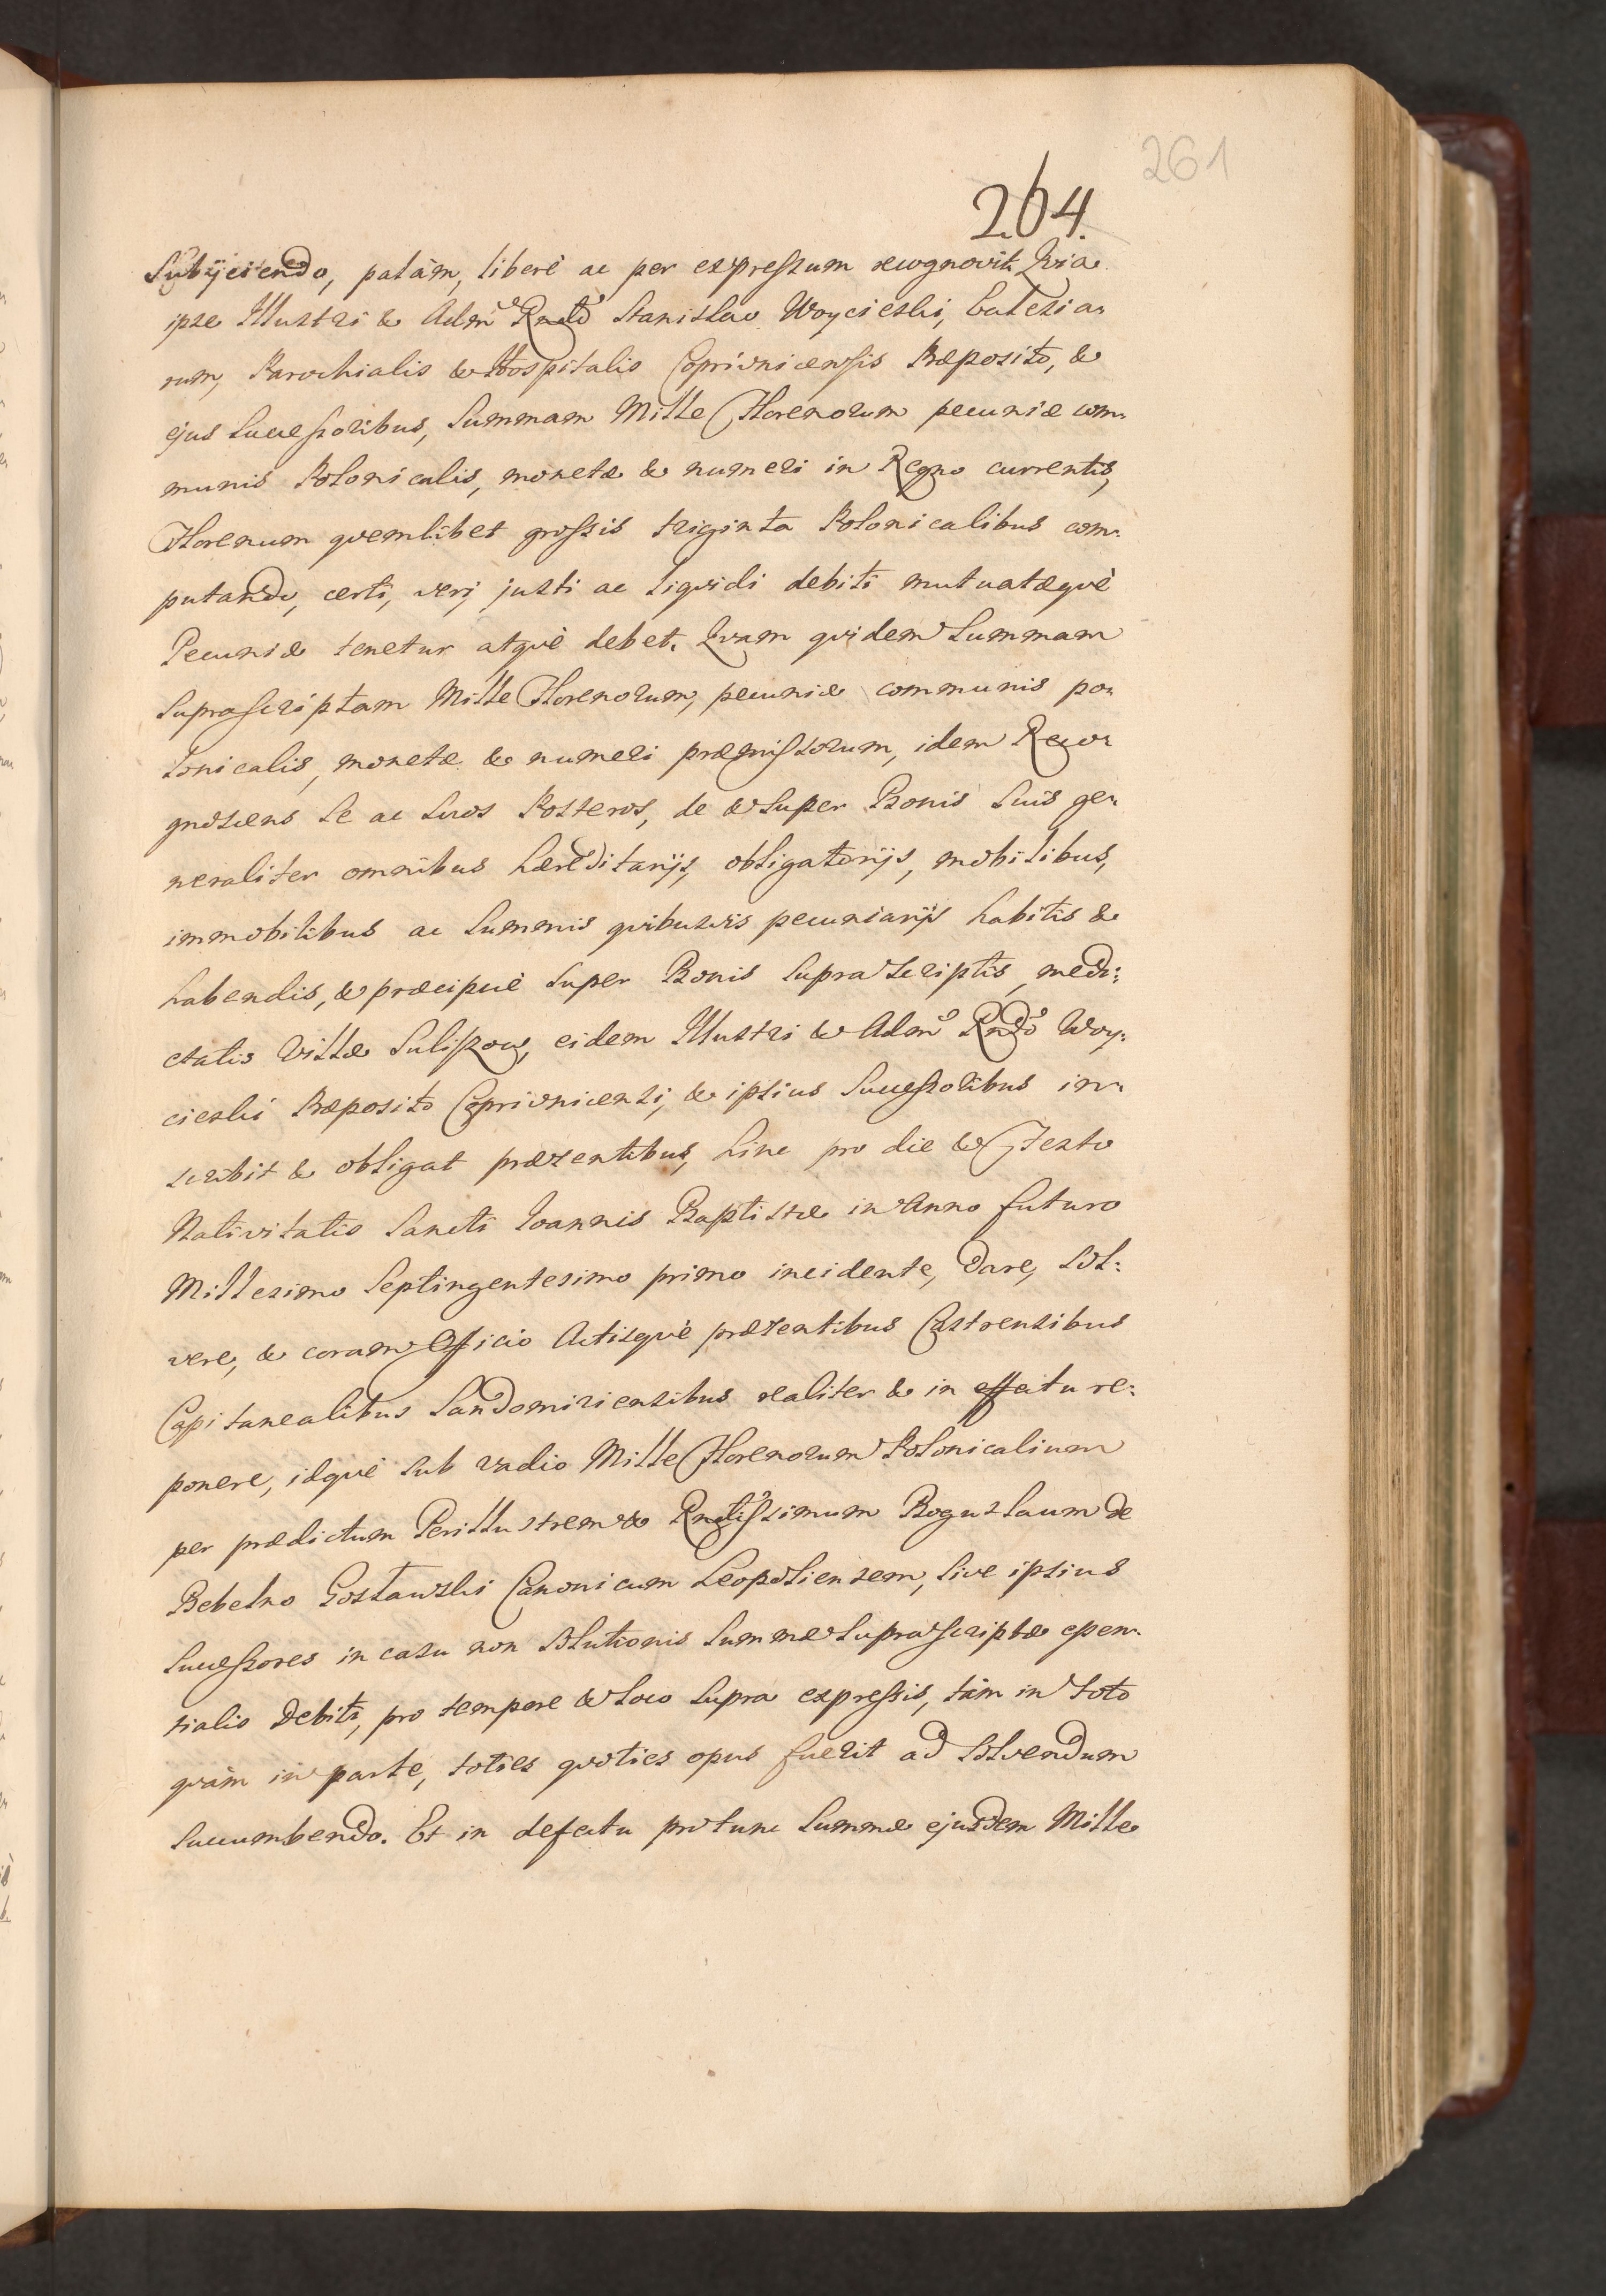 261
264.
Subÿciendo, palàm, liberè ac per expressum recognovit Qvia
ipse Illustri & Adm͂o Rndo Stanislao Woycieski, Ecclesia-
rum, Parochialis & Hospitalis Coprivnicensis Præposito, &
ejus Successoribus, Summam Mille Florenorum pecuniæ com-
munis Polonicalis, monetæ & numeri in Regno currentis,
Florenum qvemlibet grossis triginta Polonicalibus com-
putando, certi, veri, justi ac liqvidi debiti mutuatæqvè
Pecuniæ tenetur atqvè debet. Qvam qvidem Summam
Suprascriptam Mille Florenorum, pecuniæ communis po-
lonicalis, monetæ & numeri præmissorum, idem Recog-
gnoscens Se ac Suos Posteros, de & Super Bonis Suis ge-
neraliter omnibus hæreditarijs, obligatorijs, mobilibus,
immobilibus ac Summis qvibusvis pecuniarijs habitis &
habendis, & præcipuè Super Bonis Suprascriptis, medi:
etatis Villæ Suliszow, eidem Illustri & Admo Rndo Woy:
cieski Præposito Coprivnicensi, & ipsius Successoribus in-
scribit & obligat præsentibus, hinc pro die & Festo
Nativitatis Sancti Joannis Baptistæ in Anno futuro
Millesimo Septingentesimo primo incidente, dare, Sol:
vere, & coram Officio Actisqvè præsentibus Castrensibus
Capitanealibus Sandomiriensibus realiter & in effectu re:
ponere, idqvè Sub vadio Mille Florenorum Polonicalium
per prædictum Perillustrem & Rndissimum Boguslaum de
Bebelno Gosławski Canonicum Leopoliensem, Sive ipsius
Successores in casu non Solutionis Summæ Suprascriptæ essen-
tialis Debiti, pro tempore & loco Supra expressis, tàm in toto
qvàm in parte, toties qvoties opus fuerit ad Solvendum
Succumbendo. Et in defectu protunc Summæ ejusdem Mille